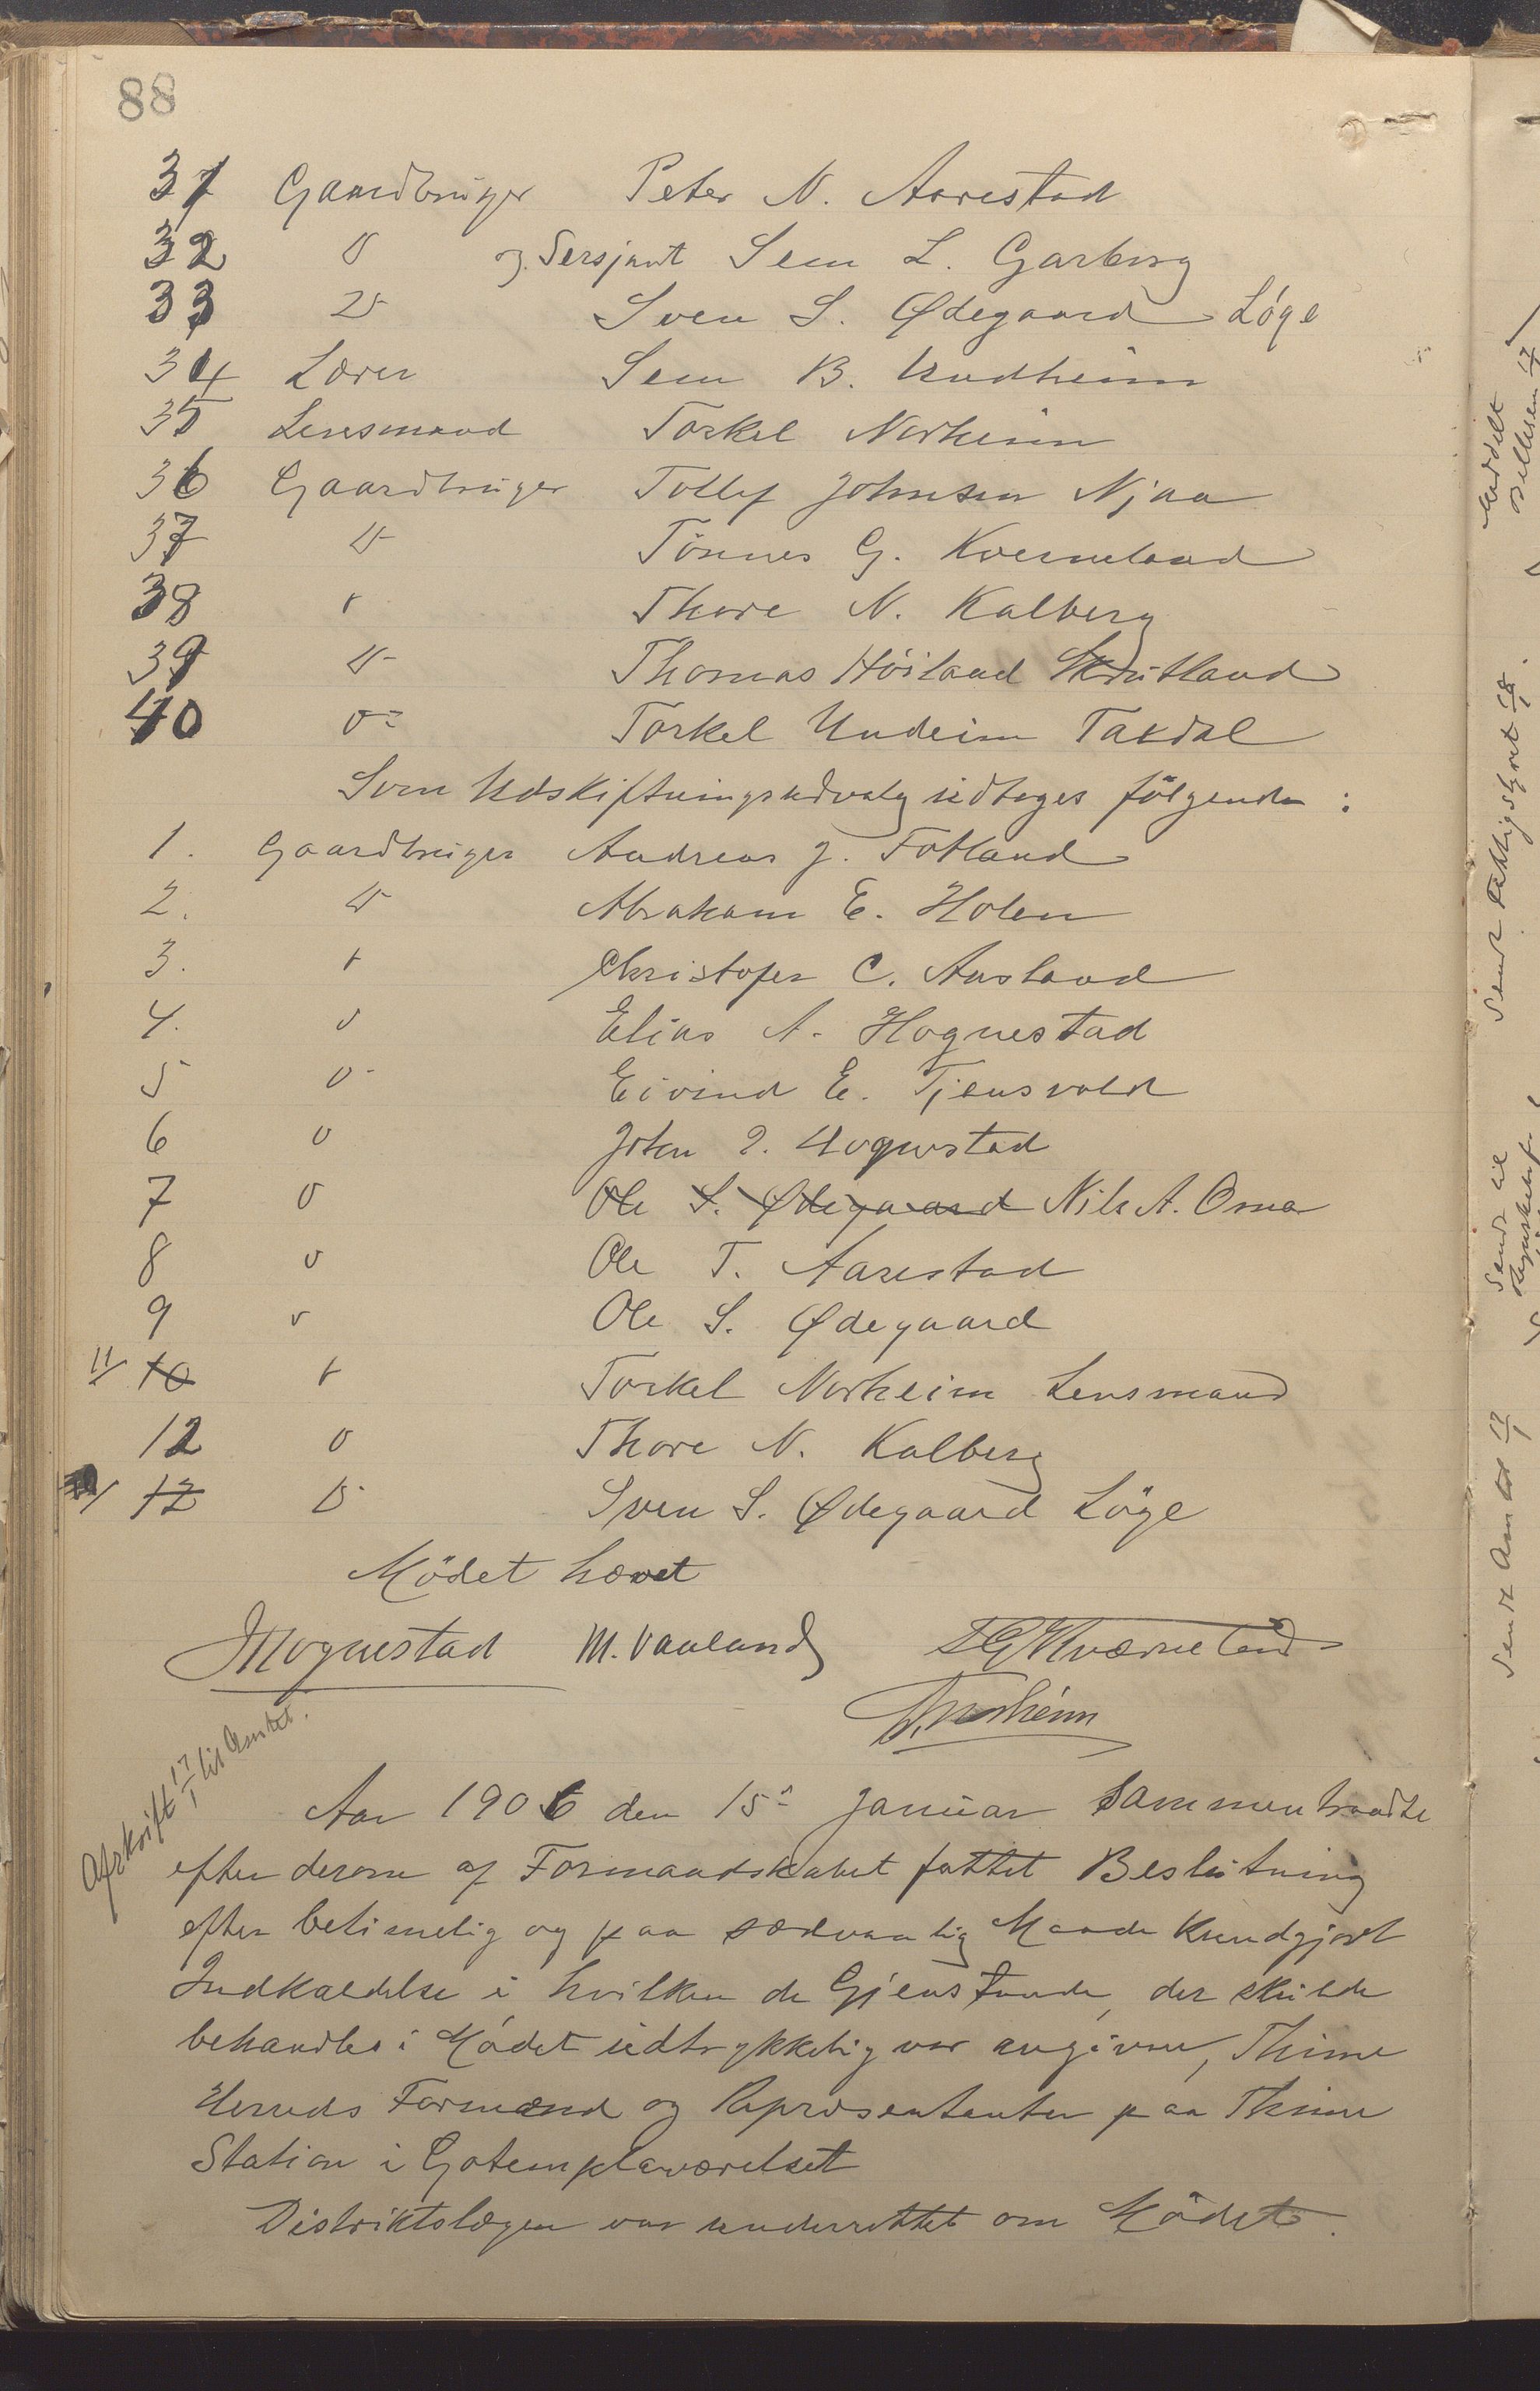 88
31 Gaardbruger Peter N. Aarestad
32 D og Sersjant Sven L. Garborg
33 D Sven S. Ødegaard Löge
34 Lærer Sven B. Undheim
35 Lensmand Torkel Norheim
36 Gaardbruger Tollef Johnsen Njaa
37 D Tönnes G. Kverneland
38 D Thore N. Kalberg
39 D Thomas Höiland Skrutland
40 D Torkel Undeim Taxdal
Som Udskiftningsudvalg udtoges fölgende :
1. Gaardbruger Andreas J. Fotland
2. D Abraham E. Holen
3. D Christofer C. Ausland
4. D Elias A. Hognestad
5 D Eivind E. Tjensvold
6 D John I. Hognestad
7 D Ole S. Ødegaard Nils A. Omar
8 D Ole T. Aarestad
9 D Ole S. Ødegaard
11/ 10 D Torkel Norheim Lensmand
12 D Thore N. Kalberg
12 D Sven S. Ødegaard Löge
Mödet hævet
JHognestad M. Vaaland TGKværneland
T. Norheim
Afskrift 17/1 til Amtet.
Aar 1906 den 15de Januar sammentraadte
efter derom af Formandskabet fattet Beslutning
efter betimelig og paa sædvanlig Maade kundgjort
Indkaldelse i hvilken de Gjenstande, der skulde
behandles i Mödet udtrykkelig var angivne, Thime
Herreds Formænd og Repræsentanter paa Thime
Station i Gotemplarværelset
Distriktslægen var underrettet om Mödet.
Meddelt
Sendt Fattigstyret 18/1
Sendt til
Sendt Amtet 17/1